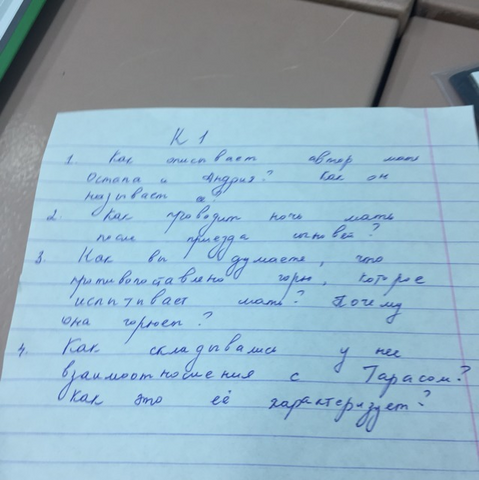 К 1
1. Как описывает автор мать
Остапа и Андрия? Как он
называет её?
2. Как проводит ночь мать
после приезда сыновей?
3. Как вы думаете, что
противопоставлено горю, которое
испытывает мать? Почему
она горюет?
4. Как складывались у нее
взаимоотношения с Тарасом?
Как это её характеризует?